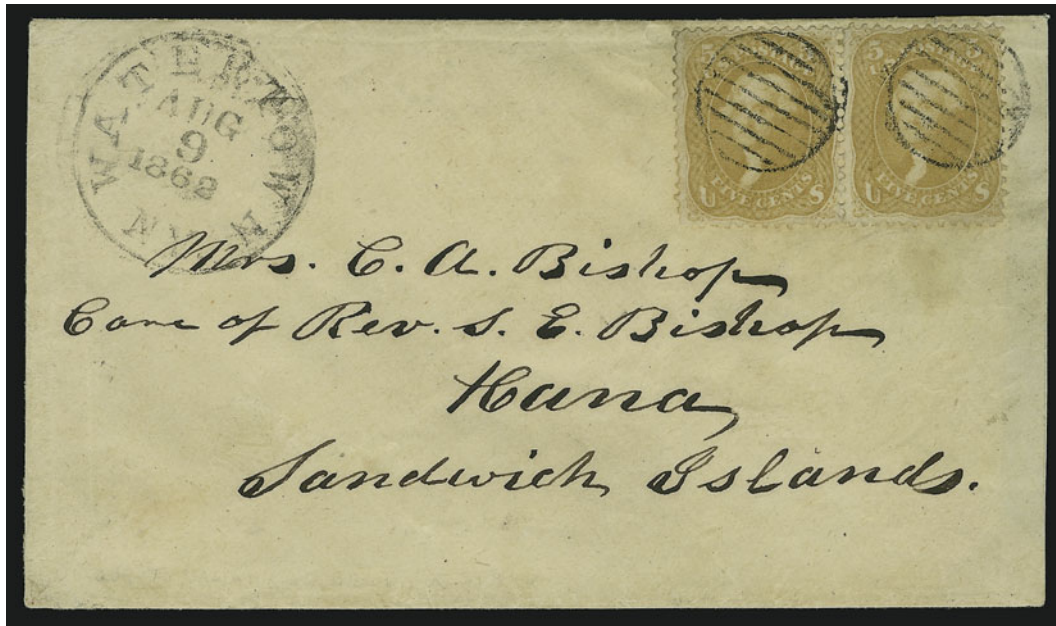 WATERTOWN
AUG
9
1862
5 5
U.S. POSTAGE
FIVE CENTS
U S
5
U.S. POSTAGE
FIVE CENTS
U S
Mrs. C. A. Bishop
Care of Rev. S. E. Bishop
Hana
Sandwich Islands.